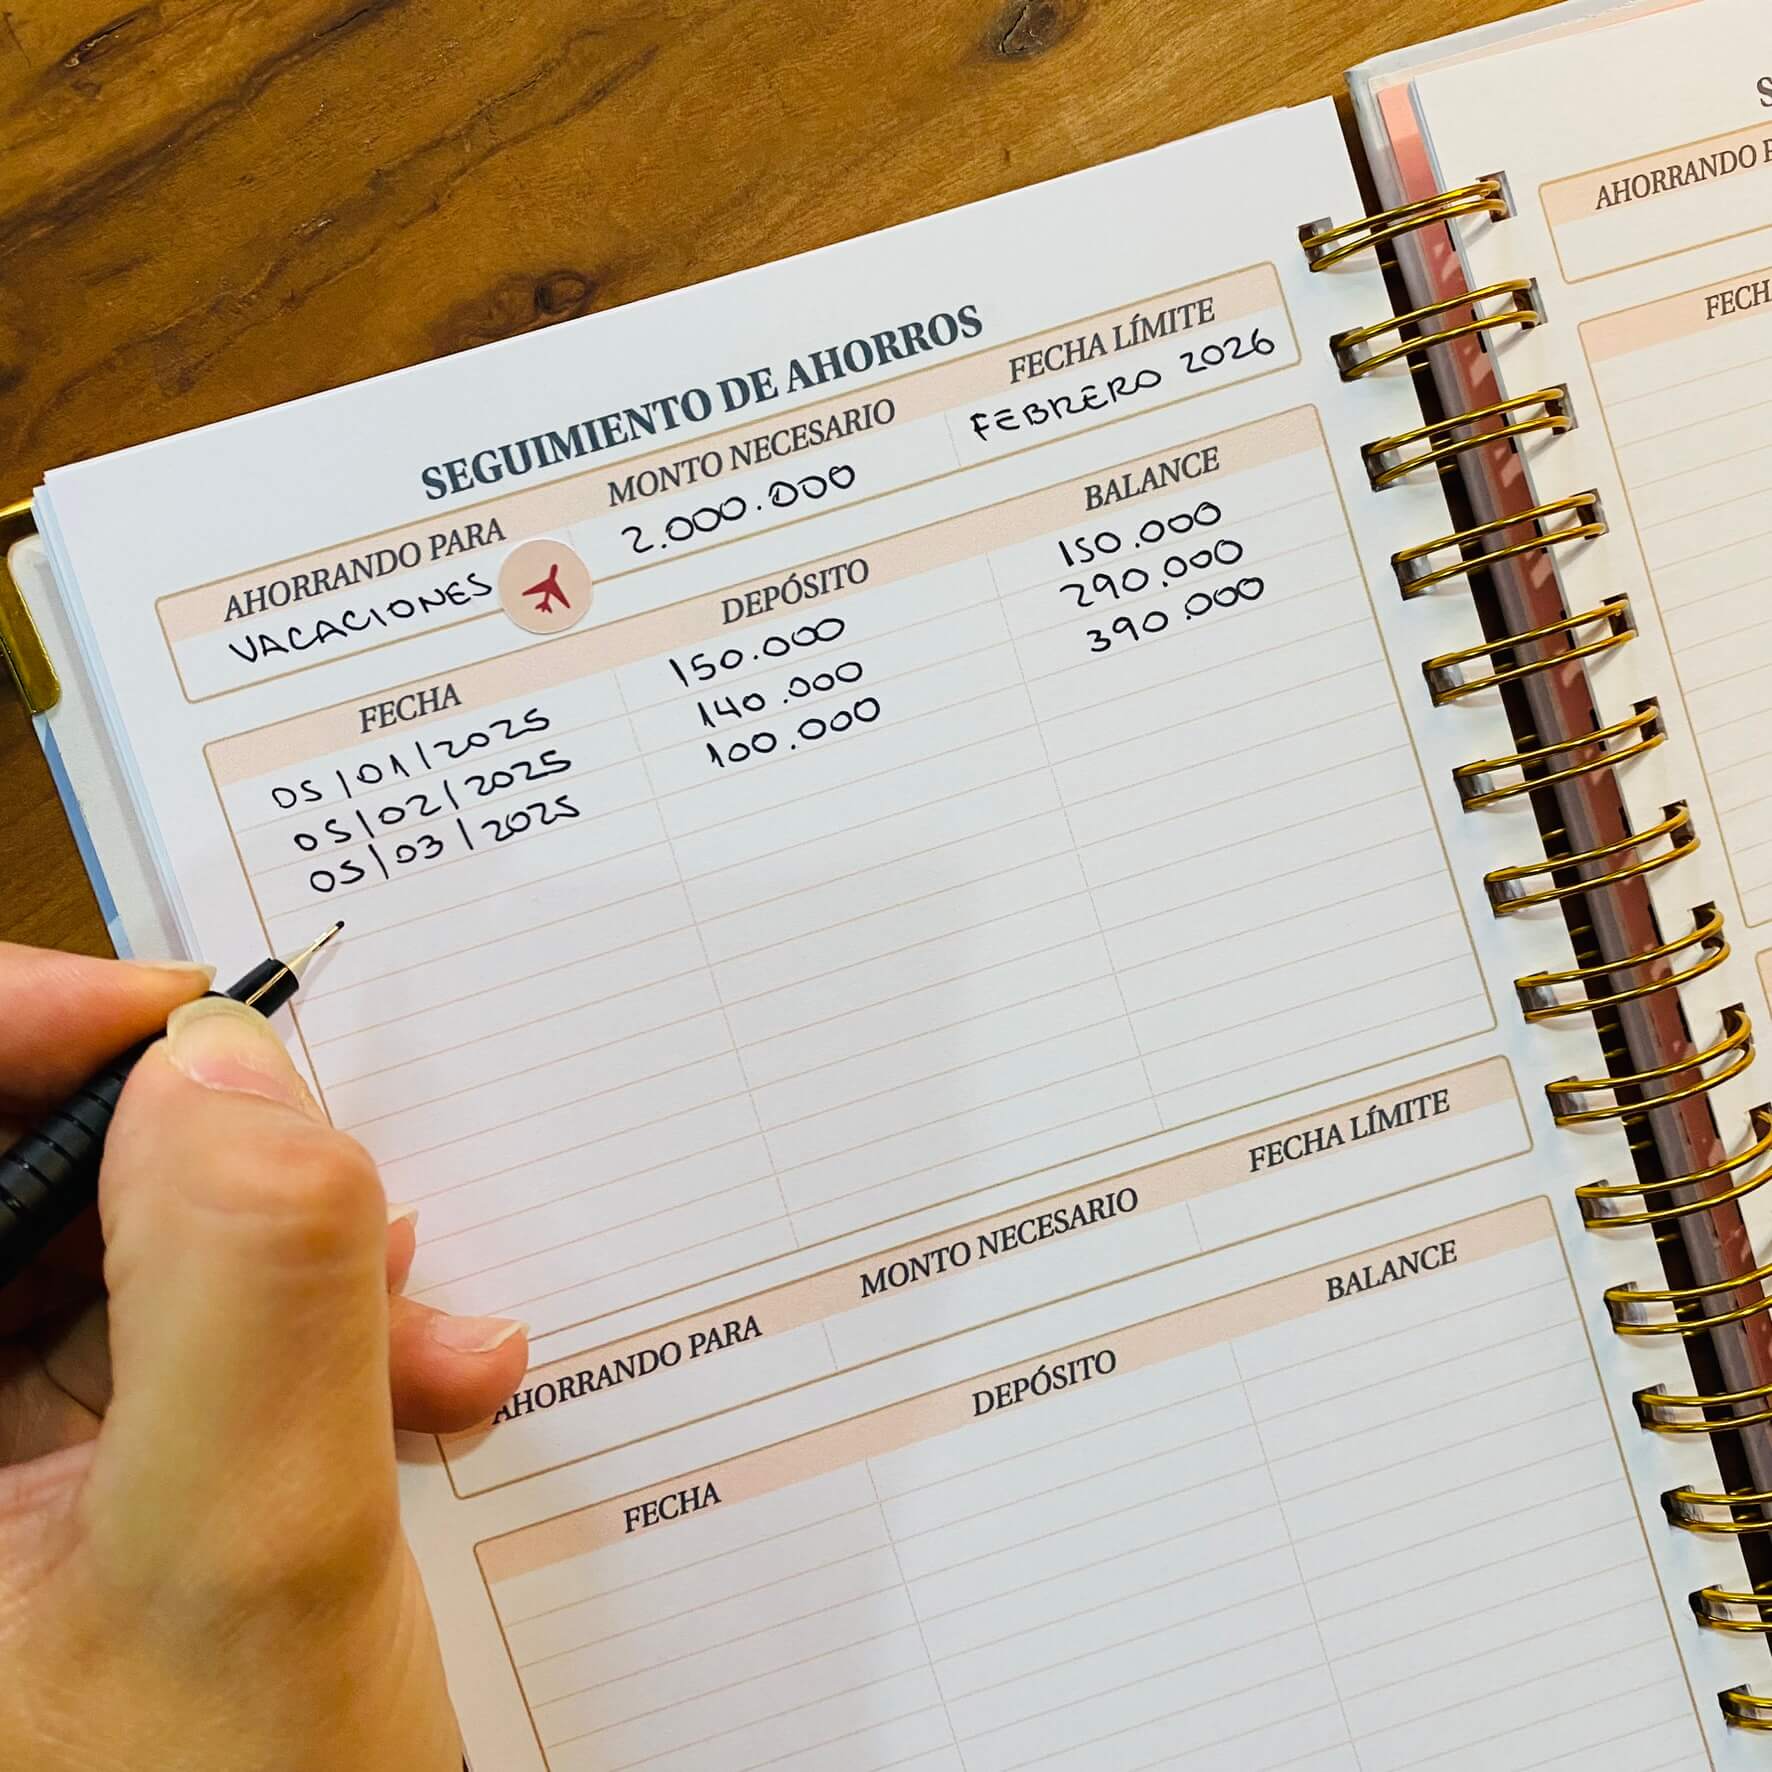 SEGUIMIENTO DE AHORROS
AHORRANDO PARA MONTO NECESARIO FECHA LÍMITE
VACACIONES 2.000.000 FEBRERO 2026
FECHA DEPÓSITO BALANCE
05/01/2025 150.000 150.000
05/02/2025 140.000 290.000
05/03/2025 100.000 390.000
AHORRANDO PARA MONTO NECESARIO FECHA LÍMITE
FECHA DEPÓSITO BALANCE
S
AHORRANDO P
FECHA